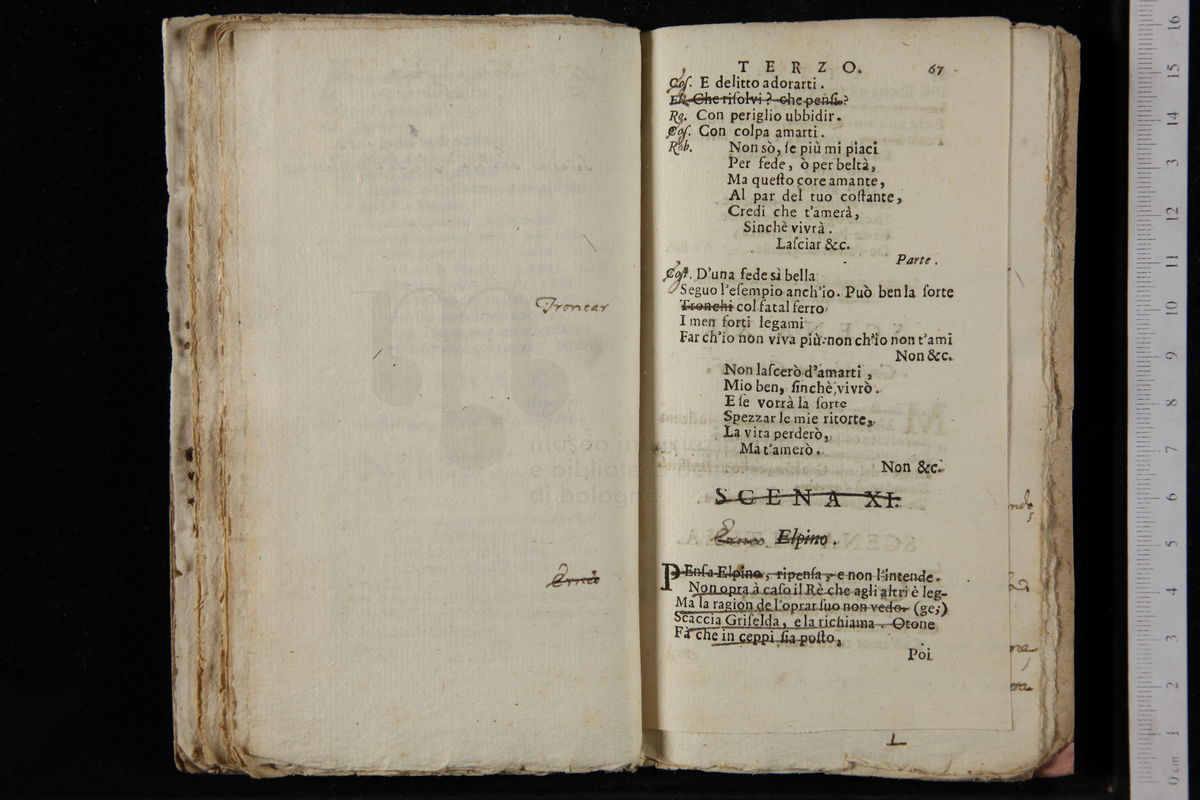 Troncar
TERZO. 67
Cos. E delitto adorarti.
Che risolvi? che pensi?
Ro. Con periglio ubbidir.
Cos. Con colpa amarti.
Rob. Non sò, se più mi piaci
Per fede, ò per beltà,
Ma questo core amante,
Al par del tuo costante,
Credi che t'amerà,
Sinchè vivrà.
Lasciar &c.
Parte.
Cost. D'una fede sì bella
Seguo l'esempio anch'io. Può ben la sorte
Tronchi col fatal ferro
I men forti legami
Far ch'io non viva più: non ch'io non t'ami
Non &c.
Non lascerò d'amarti,
Mio ben, sinchè vivrò.
E se vorrà la sorte
Spezzar le mie ritorte,
La vita perderò,
Ma t'amerò.
Non &c.
SCENA XI.
Elpino.
PEnsa Elpino, ripensa, e non l'intende.
Non opra à caso il Rè che agli altri è leg-
Ma la ragion de l'oprar suo non vedo. (ge;)
Scaccia Griselda, e la richiama. Otone
Fà che in ceppi sia posto,
Poi
museo in
e bibliote
di bologna
0 cm 1 2 3 4 5 6 7 8 9 10 11 12 13 14 15 16